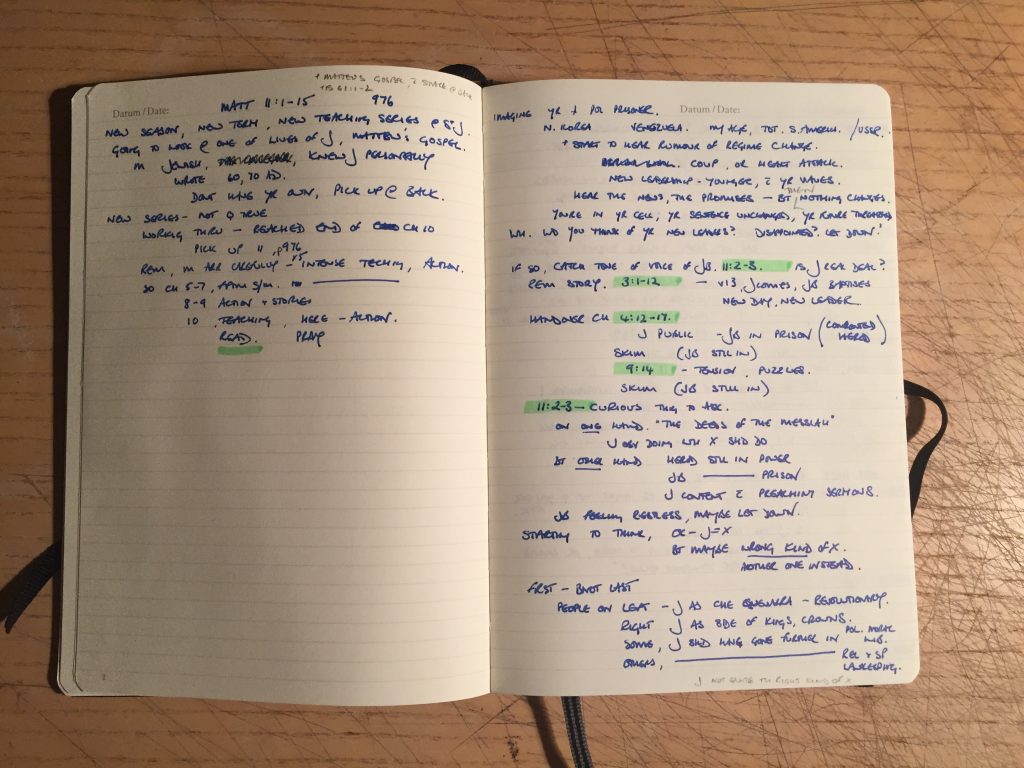 + MATTHEW'S GOSPEL, 
+ IS 61:1-2
Datum / Date:
MATT 11:1-15 976
NEW SEASON, NEW TERM, NEW TEACHING SERIES @ S J.
GOING TO LOOK @ ONE OF LIVES OF J, MATTHEW'S GOSPEL.
M JEWISH, KNEW J PERSONALLY
WROTE 60, 70 AD.
DONT HAVE YR OWN, PICK UP @ BACK.
NEW SERIES - NOT Q TRUE
WORKING THRU - REACHED END OF CH 10
PICK UP 11, p976
REM, M ARR CAREFULLY - INTENSE TEACHING, ACTION.
SO CH 5-7, S/M.
8-9 ACTION + STORIES
10 TEACHING, HERE - ACTION.
READ. PRAY
1
Datum / Date:
IMAGINE YR A POL PRISONER.
N. KOREA VENEZUELA. MY AGE, S. AMERICA. /USSR.
+ START TO HEAR RUMOUR OF REGIME CHANGE.
COUP, OR HEART ATTACK.
NEW LEADERSHIP - YOUNGER, YR VALUES.
HEAR THE NEWS, THE PROMISES - BT THEN NOTHING CHANGES.
YOURE IN YR CELL, YR SENTENCE UNCHANGED, YR FUTURE THREATENED
WH. WD YOU THINK OF YR NEW LEADER? DISAPPOINTED? LET DOWN?
IF SO, CATCH TONE OF VOICE OF JB. 11:2-3. IS J REAL DEAL?
REM STORY. 3:1-12 - v13, J COMES, JB BAPTISES
NEW DAY, NEW LEADER
HANDOVER CH 4:12-17.
J PUBLIC - JB IN PRISON (CONFRONTED HEROD)
SKIM (JB STILL IN)
9:14 - TENSION, PUZZLES.
SKIM (JB STILL IN)
11:2-3 - CURIOUS THING TO ASK.
ON ONE HAND. "THE DEEDS OF THE MESSIAH"
J OBV DOING WH X SHD DO
BT OTHER HAND HEROD STILL IN POWER
JB ——— PRISON
J CONTENT PREACHING SERMONS.
JB FEELING RESTLESS, MAYBE LET DOWN.
STARTING TO THINK, OK - J = X
BT MAYBE WRONG KIND OF X.
ANOTHER ONE INSTEAD.
FIRST - BT NOT LAST
PEOPLE ON LEFT - J AS CHE GUEVARA - REVOLUTIONARY.
RIGHT J AS SIDE OF KINGS, CROWNS.
SOME, J SHD HAVE GONE FURTHER IN POL. MORAL
OTHERS, ——— REL + SP
LAWKEEPING.
J NOT QUITE TH RIGHT KIND OF X